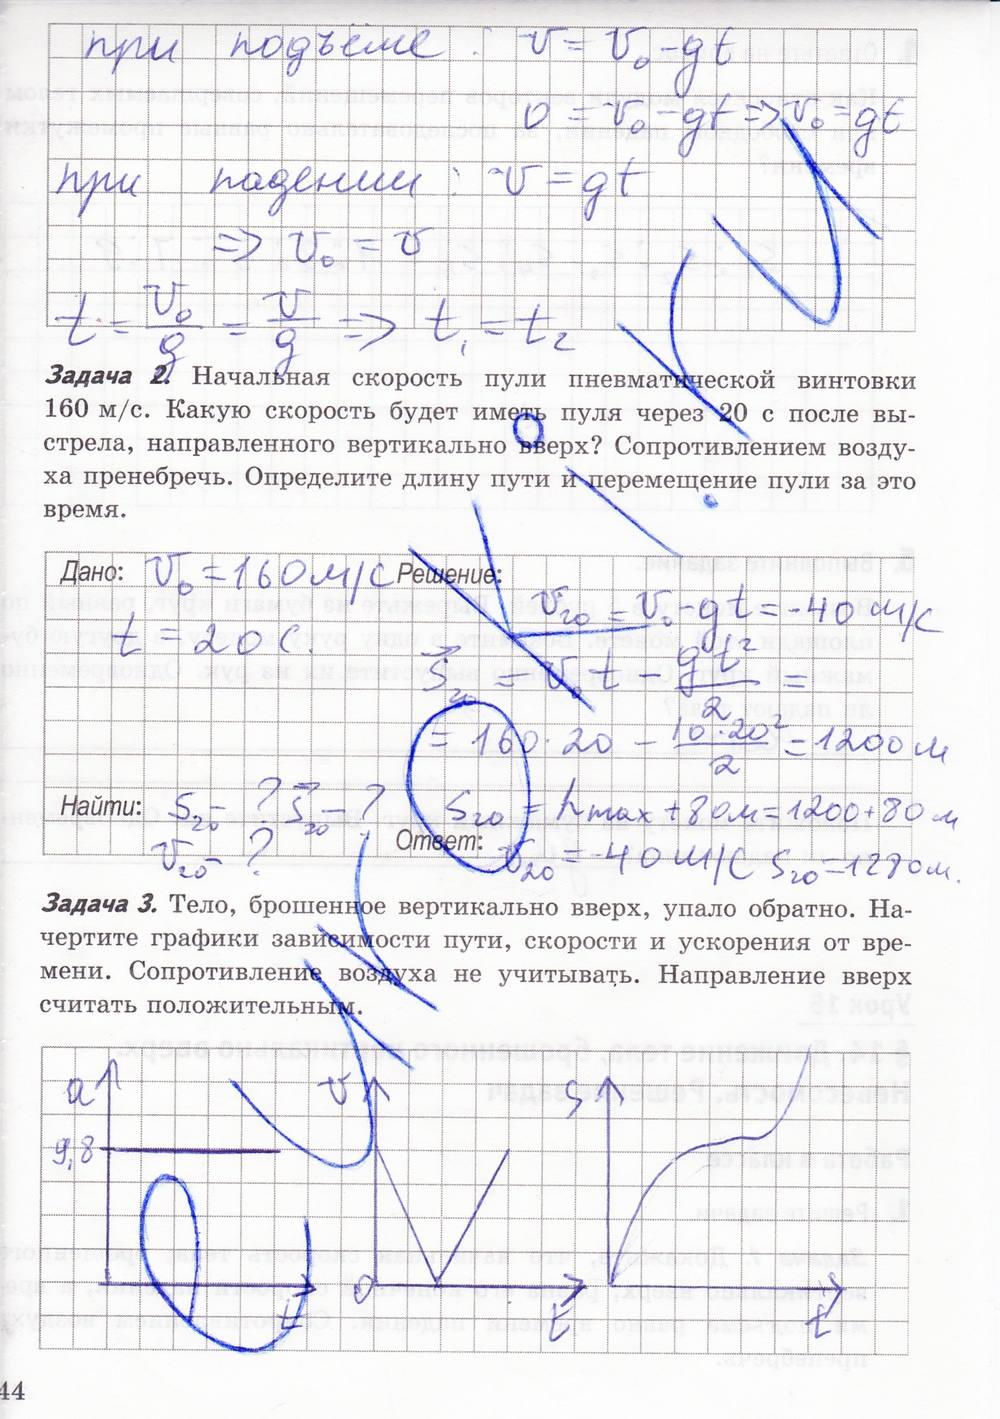 при подъёме : v = v₀ - gt
0 = v₀ - gt => v₀ = gt
при падении : v = gt
=> v₀ = v
t = v₀/g = v/g => t₁ = t₂
Задача 2. Начальная скорость пули пневматической винтовки
160 м/с. Какую скорость будет иметь пуля через 20 с после вы-
стрела, направленного вертикально вверх? Сопротивлением возду-
ха пренебречь. Определите длину пути и перемещение пули за это
время.
Дано: v₀ = 160 м/с Решение:
v₂₀ = v₀ - gt = -40 м/с
t = 20 с.
S⃗₂₀ = v₀t - gt²/2 =
= 160·20 - 10·20²/2 = 1200 м
Найти: S₂₀ - ? S⃗₂₀ - ? S₂₀ = hmax + 80м = 1200 + 80 м
v₂₀ - ? Ответ: v₂₀ = -40 м/с S₂₀ = 1280 м.
Задача 3. Тело, брошенное вертикально вверх, упало обратно. На-
чертите графики зависимости пути, скорости и ускорения от вре-
мени. Сопротивление воздуха не учитывать. Направление вверх
считать положительным.
a v S
9,8
0
t t t
44